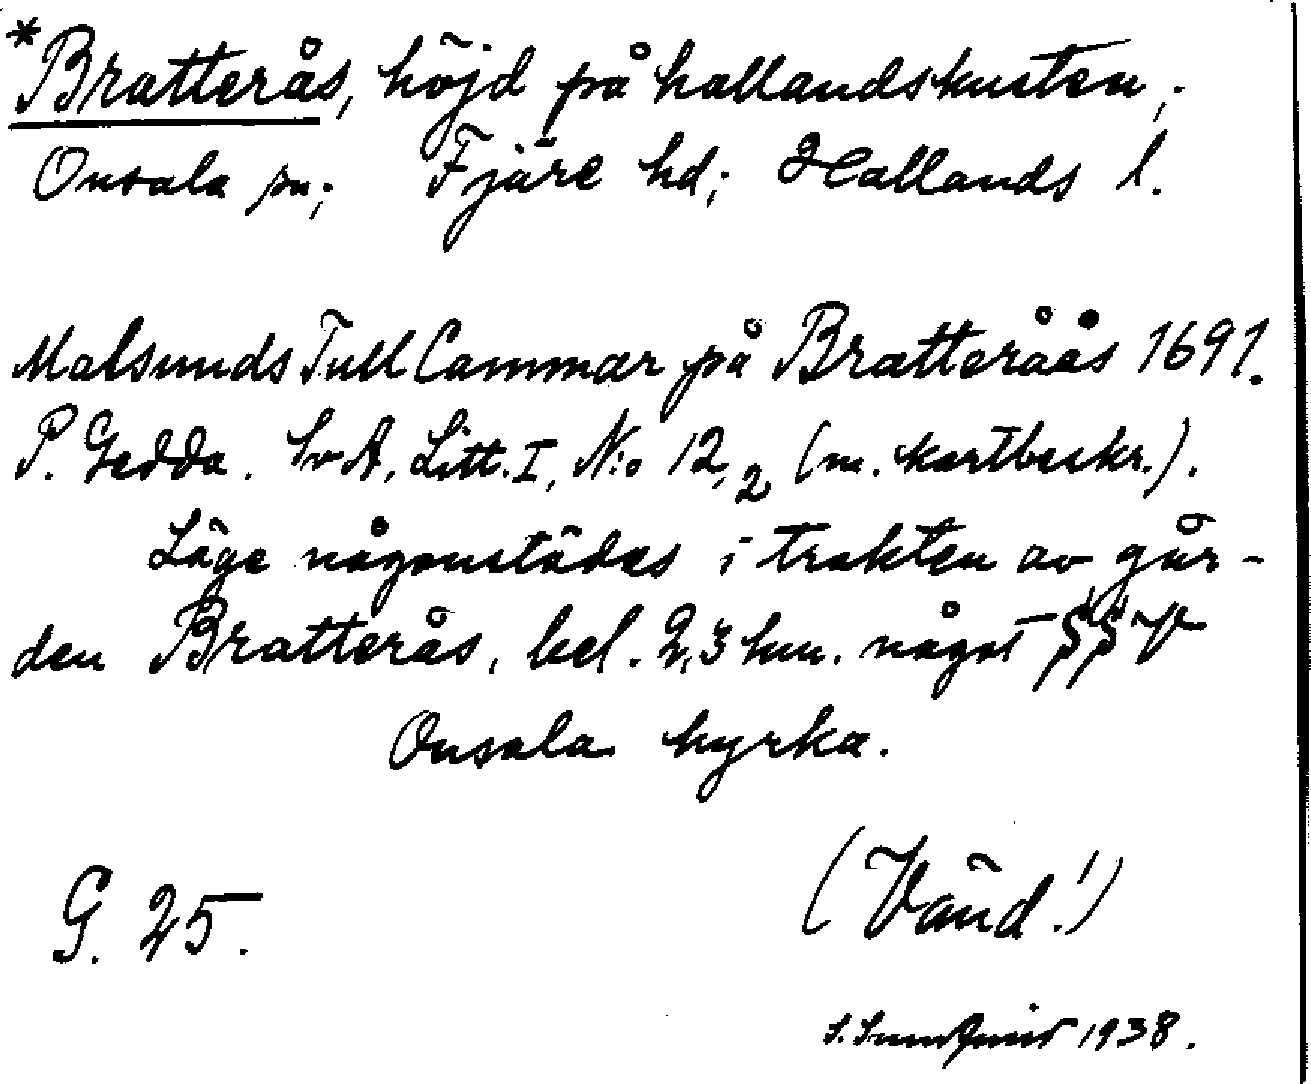 *Bratterås, höjd på hallandskusten,.
Onsala sn; Fjäre hd; Hallands l.
Malsunds Tull Cammar på Bratteråås 1691.
P. Gedda. SvA, Litt. I, N:o 12,2 (m. kartbeskr.).
Läge någonstädes i trakten av går-
den Bratterås, bel. 2,3 km. något SSV
Onsala kyrka.
G. 25.
(Vänd!)
S. 1938.